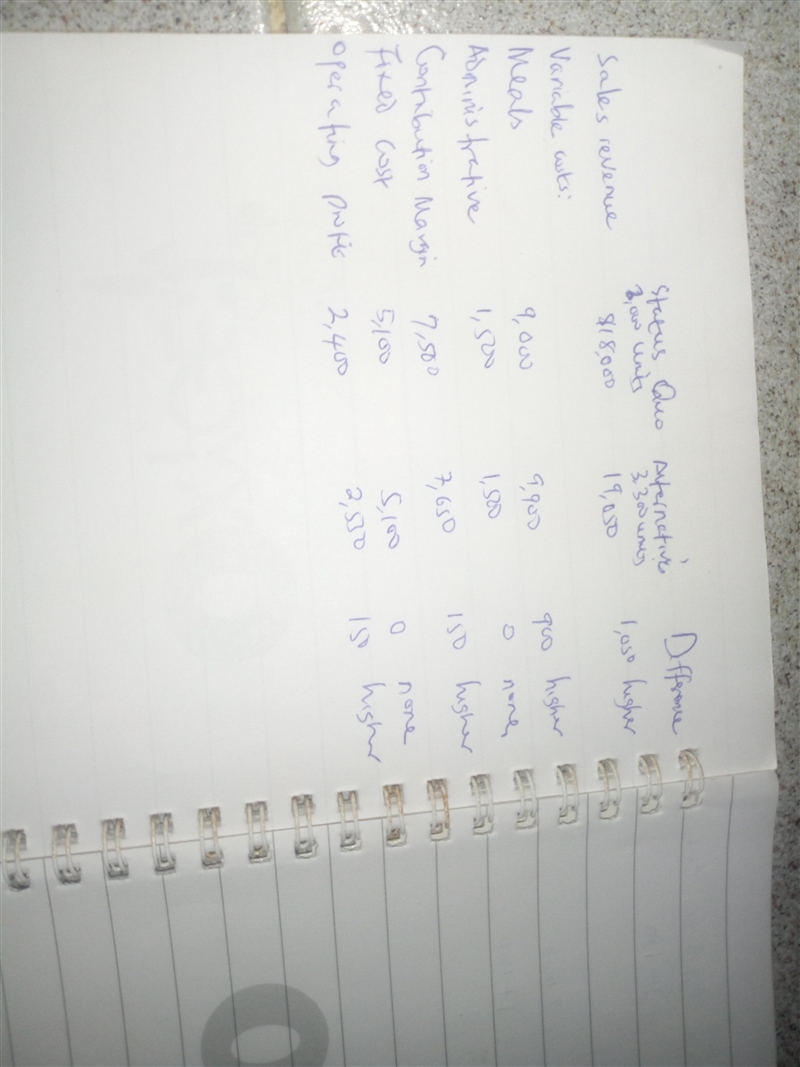 Status Quo Alternative Difference
3,000 units 3,300 units
Sales revenue $18,000 19,050 1,050 higher
Variable costs:
Meals 9,000 9,900 900 higher
Administrative 1,500 1,500 0 none
Contribution Margin 7,500 7,650 150 higher
Fixed cost 5,100 5,100 0 none
Operating profit 2,400 2,550 150 higher